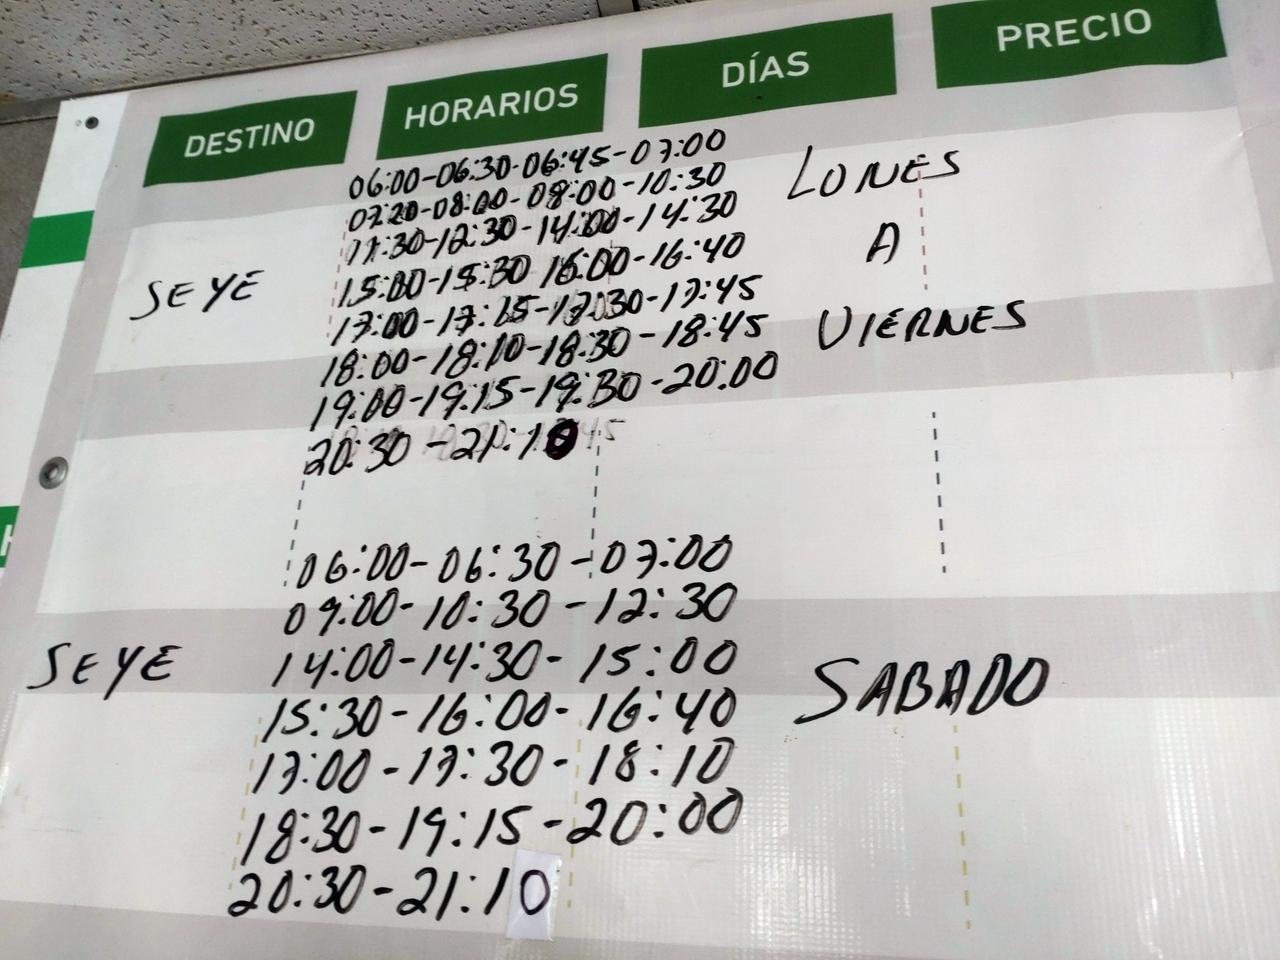 DESTINO HORARIOS DÍAS PRECIO
06:00-06:30-06:45-07:00
07:20-08:00-08:00-10:30
11:30-12:30-14:00-14:30
15:00-15:30 16:00-16:40
17:00-17:15-17:30-17:45
18:00-18:10-18:30-18:45
19:00-19:15-19:30-20:00
20:30-21:10
SEYE
LUNES
A
VIERNES
06:00-06:30-07:00
09:00-10:30-12:30
14:00-14:30-15:00
15:30-16:00-16:40
17:00-17:30-18:10
18:30-19:15-20:00
20:30-21:10
SEYE
SABADO